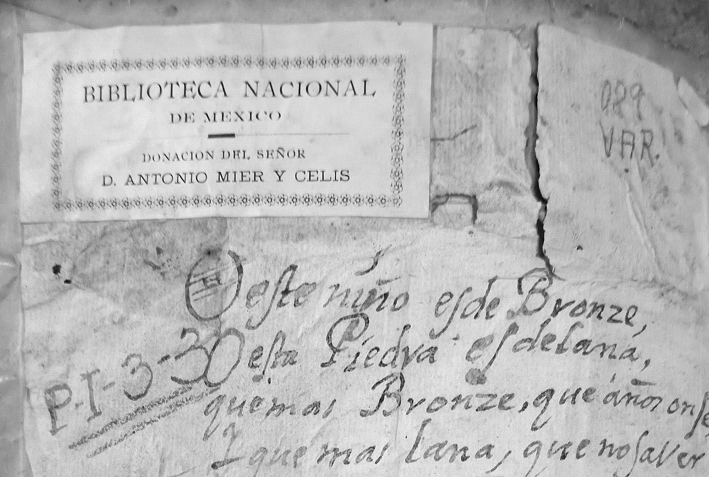 BIBLIOTECA NACIONAL
DE MEXICO
DONACION DEL SEÑOR
D. ANTONIO MIER Y CELIS
089
VAR.
O este niño es de Bronze,
P-I-3-3
O esta Piedra es de lana,
que mas Bronze, que años onse
I que mas lana, que no saver